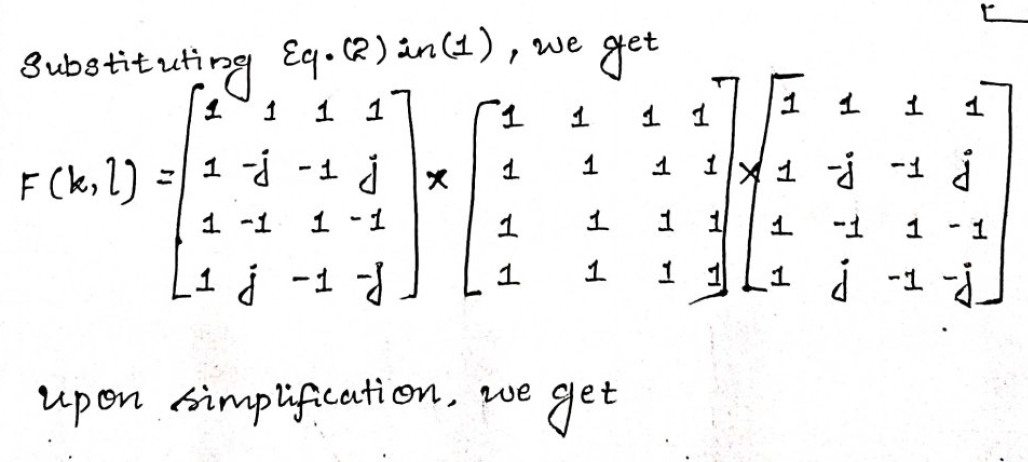 Substituting Eq.(2) in (1), we get
F(k,l) = [1 1 1 1; 1 -j -1 j; 1 -1 1 -1; 1 j -1 -j] × [1 1 1 1; 1 1 1 1; 1 1 1 1; 1 1 1 1] × [1 1 1 1; 1 -j -1 j; 1 -1 1 -1; 1 j -1 -j]
upon simplification, we get